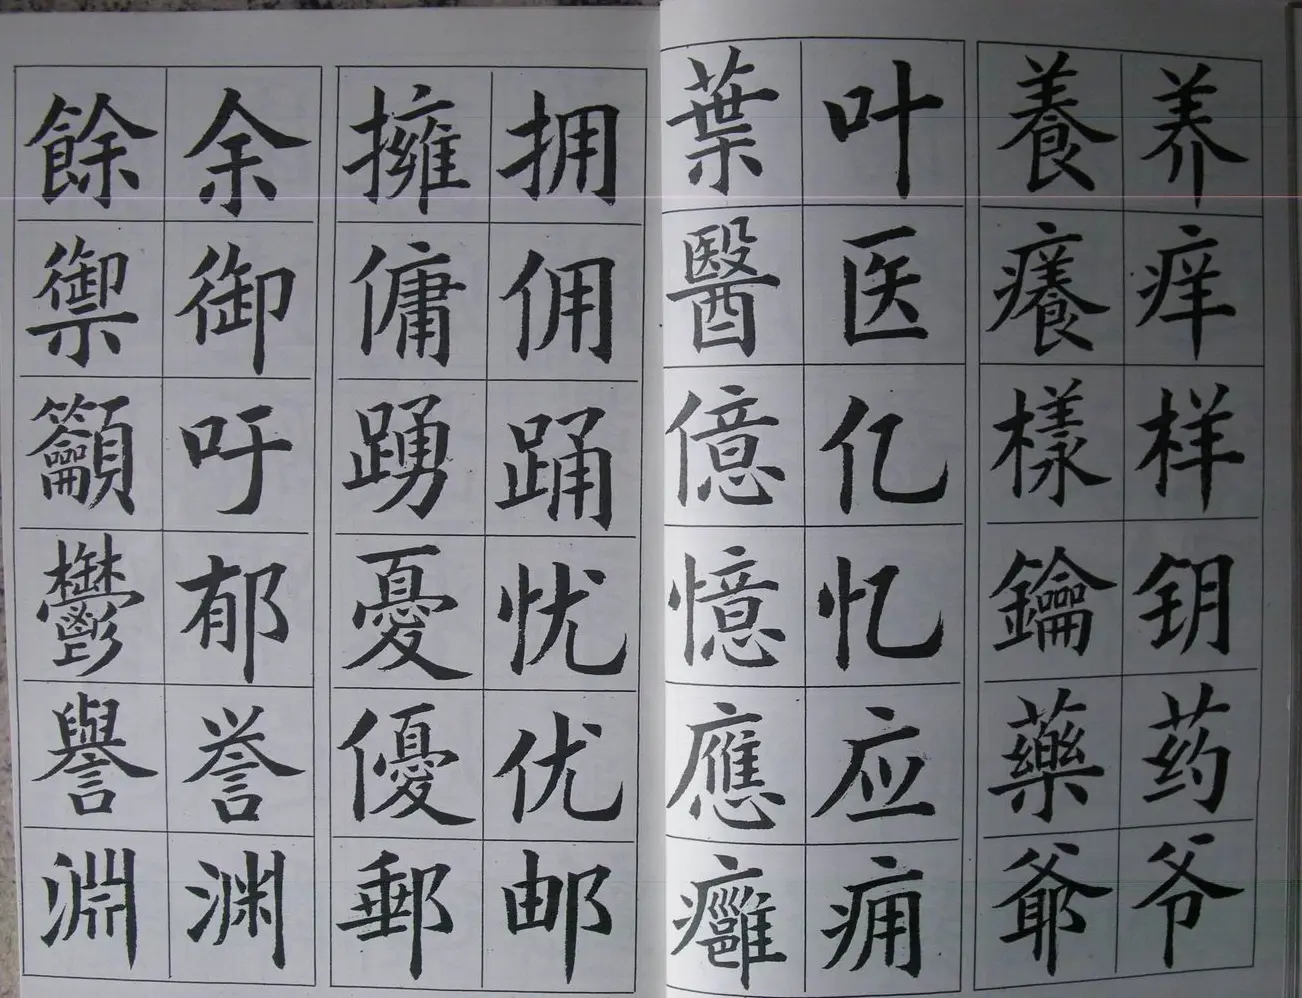 养痒样钥药爷
養癢樣鑰藥爺
叶医亿忆应痈
葉醫億憶應癰
拥佣踊忧优邮
擁傭踴憂優郵
余御吁郁誉渊
餘禦籲鬱譽淵